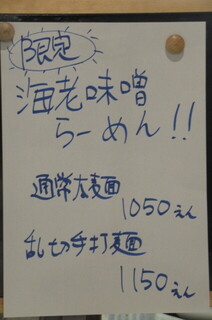 限定
海老味噌
らーめん!!
通常太麺
1050えん
乱切手打麺
1150えん